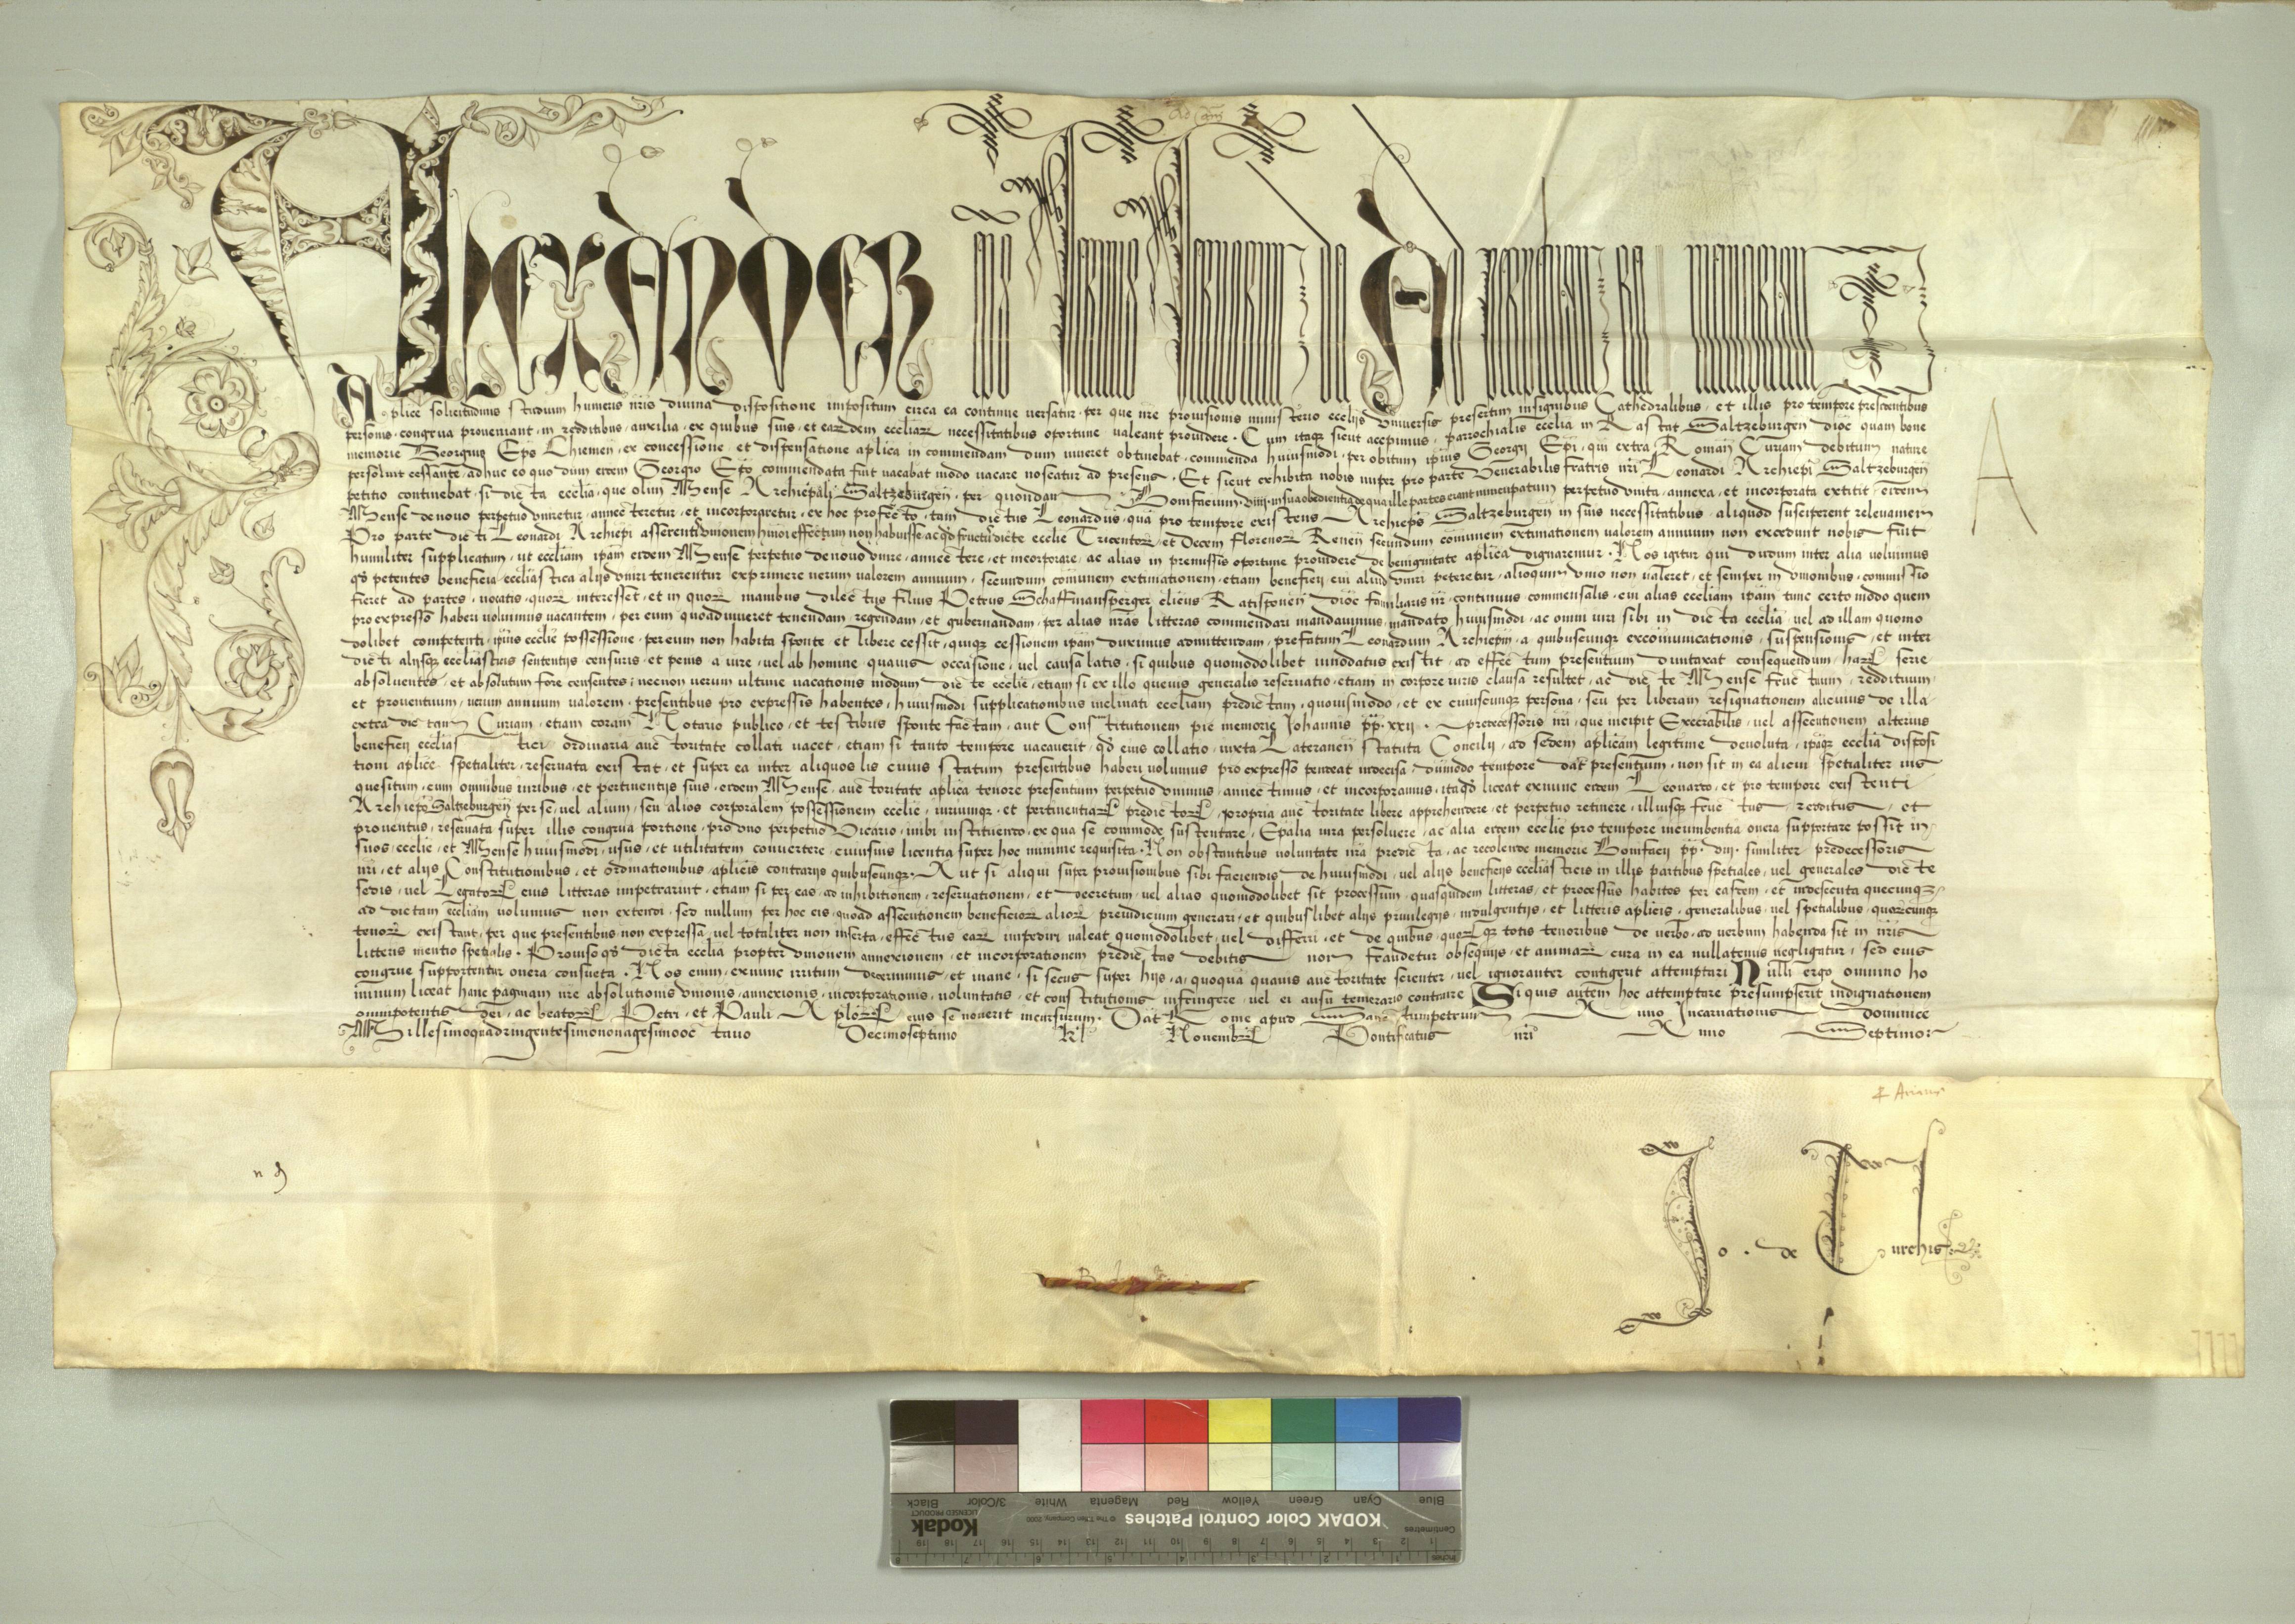 Ad
ALEXANDER eps seruus seruorum dei Ad perpetuam rei memoriam
A
Aplice solicitudinis studium humeris nris diuina dispositione impositum circa ea continue uersatur, per que nre prouisionis ministerio eccliis Vniuersis presertim insignibus Cathedralibus, et illis pro tempore presidentibus
personis, congrua proueniant, in redditibus, auxilia, ex quibus suis, et earundem eccliarum necessitatibus oportune ualeant prouidere. Cum itaqz sicut accepimus, parrochialis ecclia in Rastat Saltzeburgen dioc quam bone
memorie Georgius Epo Chiemen, ex concessione, et dispensatione aplica in commendam dum uiueret obtinebat, commenda huiusmodi, per obitum ipius Georgij Epi, qui extra Roman Curiam debitum nature
persoluit cessante, adhuc eo quo dum eidem Georgio Epo commendata fuit uacabat modo uacare noscatur ad presens. Et sicut exhibita nobis nuper pro parte Venerabilis fratris nri Leonardi Archiepi Saltzeburgen
petitio continebat, si dicta ecclia, que olim Mense Archiepali Saltzeburgen, per quondam Bonifacium. Viiij. in sua obedientia de qua ille partes erant nuncupatum perpetuo vnita, annexa, et incorporata extitit, eidem
Mense denuo perpetuo vniretur, annecteretur, et incorporaretur, ex hoc profecto, tam dictus Leonardus, qua pro tempore existens Archieps Saltzeburgen in suis necessitatibus, aliquod susciperent releuamen
Pro parte dicti Leonardi Archiepi asserentis vnionem huiusmoi effectum non habuisse, ac qd fructus dicte ecclie Tricentorum, et Decem Florenorum Renen secundum comunem extimationem ualorem annuum non excedunt nobis fuit
humiliter supplicatum, ut eccliam ipam eidem Mense perpetuo denuo vnire, annectere, et incorporare, ac alias in premissis oportune prouidere de benignitate aplica dignaremur. Nos igitur qui dudum inter alia uoluimus
qd petentes beneficia ecclesiastica alijs vniri tenerentur exprimere uerum ualorem annuum, secundum comunem extimationem, etiam beneficij cui aliud vniri peteretur, alioquin vnio non ualeret, et semper in vnionibus, commissio
fieret ad partes, uocatis, quorum interesset, et in quorum manibus dilectus filius Petrus Schaffmansperger clicus Ratisponen dioc familiaris nr, continuus, commensalis, cui alias eccliam ipam tunc certo modo quem
pro expresso haberi uolumus uacantem, per eum, quoad uiueret tenendam, regendam, et gubernandam, per alias nras litteras commendari mandauimus, mandato huiusmodi, ac omni iuri sibi in dicta ecclia, uel ad illam quomo
dolibet competenti, ipius ecclie possessione, per eum non habita sponte et libere cessit, quiqz cessionem ipam duximus admittendam, prefatum Leonardum Archiepm, a quibuscumqz excomunicationis, suspensionis, et inter
dicti alijsqz ecclesiasticis sententijs censuris, et penis a iure, uel ab homine quauis occasione, uel causa latis, si quibus quomodolibet innodatus existit, ad effectum presentium duntaxat consequendum, harum serie
absoluentes, et absolutum fore censentes: necnon uerum ultime uacationis modum dicte ecclie, etiam si ex illo queuis generalis reseruatio, etiam in corpore iuris clausa resultet, ac dicte Mense fructuum, reddituum,
et prouentuum, uerum annuum ualorem, presentibus pro expressis habentes, huiusmodi supplicationibus inclinati eccliam predictam, quouismodo, et ex cuiuscumqz persona, seu per liberam resignationem alicuius de illa
extra dictam Curiam, etiam coram Notario publico, et testibus sponte factam, aut Constitutionem pie memorie Johannis pp. xxij. predecessoris nri, que incipit Execrabilis, uel assecutionem alterius
beneficij ecclesiastici ordinaria auctoritate collati uacet, etiam si tanto tempore uacauerit, qd eius collatio, iuxta Lateranen statuta Concilij, ad sedem aplicam legitime deuoluta, ipaqz ecclia disposi
tioni aplice spetialiter, reseruata existat, et super ea inter aliquos lis cuius statum presentibus haberi uolumus pro expresso pendeat indecisa, dummodo tempore dat presentium, non sit in ea alicui spetialiter ius
quesitum, cum omnibus iuribus, et pertinentijs suis, eidem Mense, auctoritate aplica tenore presentium perpetuo vnimus, annectimus, et incorporamus, ita qd liceat exnunc eidem Leonardo, et pro tempore existenti
Archiepo Saltzeburgen per se, uel alium, seu alios corporalem possessionem ecclie, iuriumqz, et pertinentiarum predictorum, propria auctoritate libere apprehendere, et perpetuo retinere, illiusqz fructus, redditus, et
prouentus, reseruata super illis congrua portione, pro vno perpetuo Vicario, inibi instituendo, ex qua se commode sustentare, Epalia iura persoluere, ac alia eidem ecclie pro tempore incumbentia onera supportare possit in
suos, ecclie, et Mense huiusmodi, usus, et utilitatem conuertere, cuiusuis licentia super hoc minime requisita. Non obstantibus uoluntate nra predicta, ac recolende memorie Bonifacij pp. Viij. similiter predecessoris
nri, et alijs Constitutionibus, et ordinationibus, aplicis contrarijs quibuscumqz. Aut si aliqui super prouisionibus sibi faciendis de huiusmodi, uel alijs beneficijs ecclesiasticis in illis partibus spetiales, uel generales dicte
sedis, uel Legatorum eius litteras impetrarint, etiam si per eas, ad inhibitionem, reseruationem, et decretum, uel alias quomodolibet sit processum, quasquidem litteras, et processus habitos per easdem, et indesecuta quecumqz,
ad dictam eccliam uolumus non extendi, sed nullum per hoc eis, quoad assecutionem beneficiorum aliorum preiudicium generari, et quibuslibet alijs priuilegijs, indulgentijs, et litteris aplicis, generalibus, uel spetialibus, quorumcumqz
tenorum existant, per que presentibus non expressa, uel totaliter non inserta, effectus earum impediri ualeat quomodolibet, uel differri, et de quibus, quorumqz totis tenoribus de uerbo, ad uerbum habenda sit in nris
litteris mentio spetialis. Prouiso qd dicta ecclia propter vnionem annexionem, et incorporationem predictas debitis non fraudetur obsequijs, et animarum cura in ea nullatenus negligatur, sed eius
congrue supportentur onera consueta. Nos enim, exnunc irritum decernimus, et inane, si secus super hijs, a, quoqua quauis auctoritate scienter, uel ignoranter contigerit attemptari Nulli ergo omnino ho
minum liceat hanc paginam nre absolutionis vnionis, annexionis, incorporationis, uoluntatis, et constitutionis infringere, uel ei ausu temerario contraire Si quis autem hoc attemptare presumpserit indignationem
omnipotentis dei, ac beatorum Petri, et Pauli Aplorum, eius se nouerit incursurum. Dat Rome apud Sanctumpetrum Anno Incarnationis dominice
Millesimoquadringentesimononagesimooctauo Decimoseptimo kl Nouembr Pontificatus nri Anno Septimo
Jo. de Turchis
KODAK Color Control Patches
Kodak
LICENSED PRODUCT
© The Tiffen Company, 2000
Blue Cyan Green Yellow Red Magenta White 3/Color Black
Centimetres
Inches
1 2 3 4 5 6 7 8 9 10 11 12 13 14 15 16 17 18 19